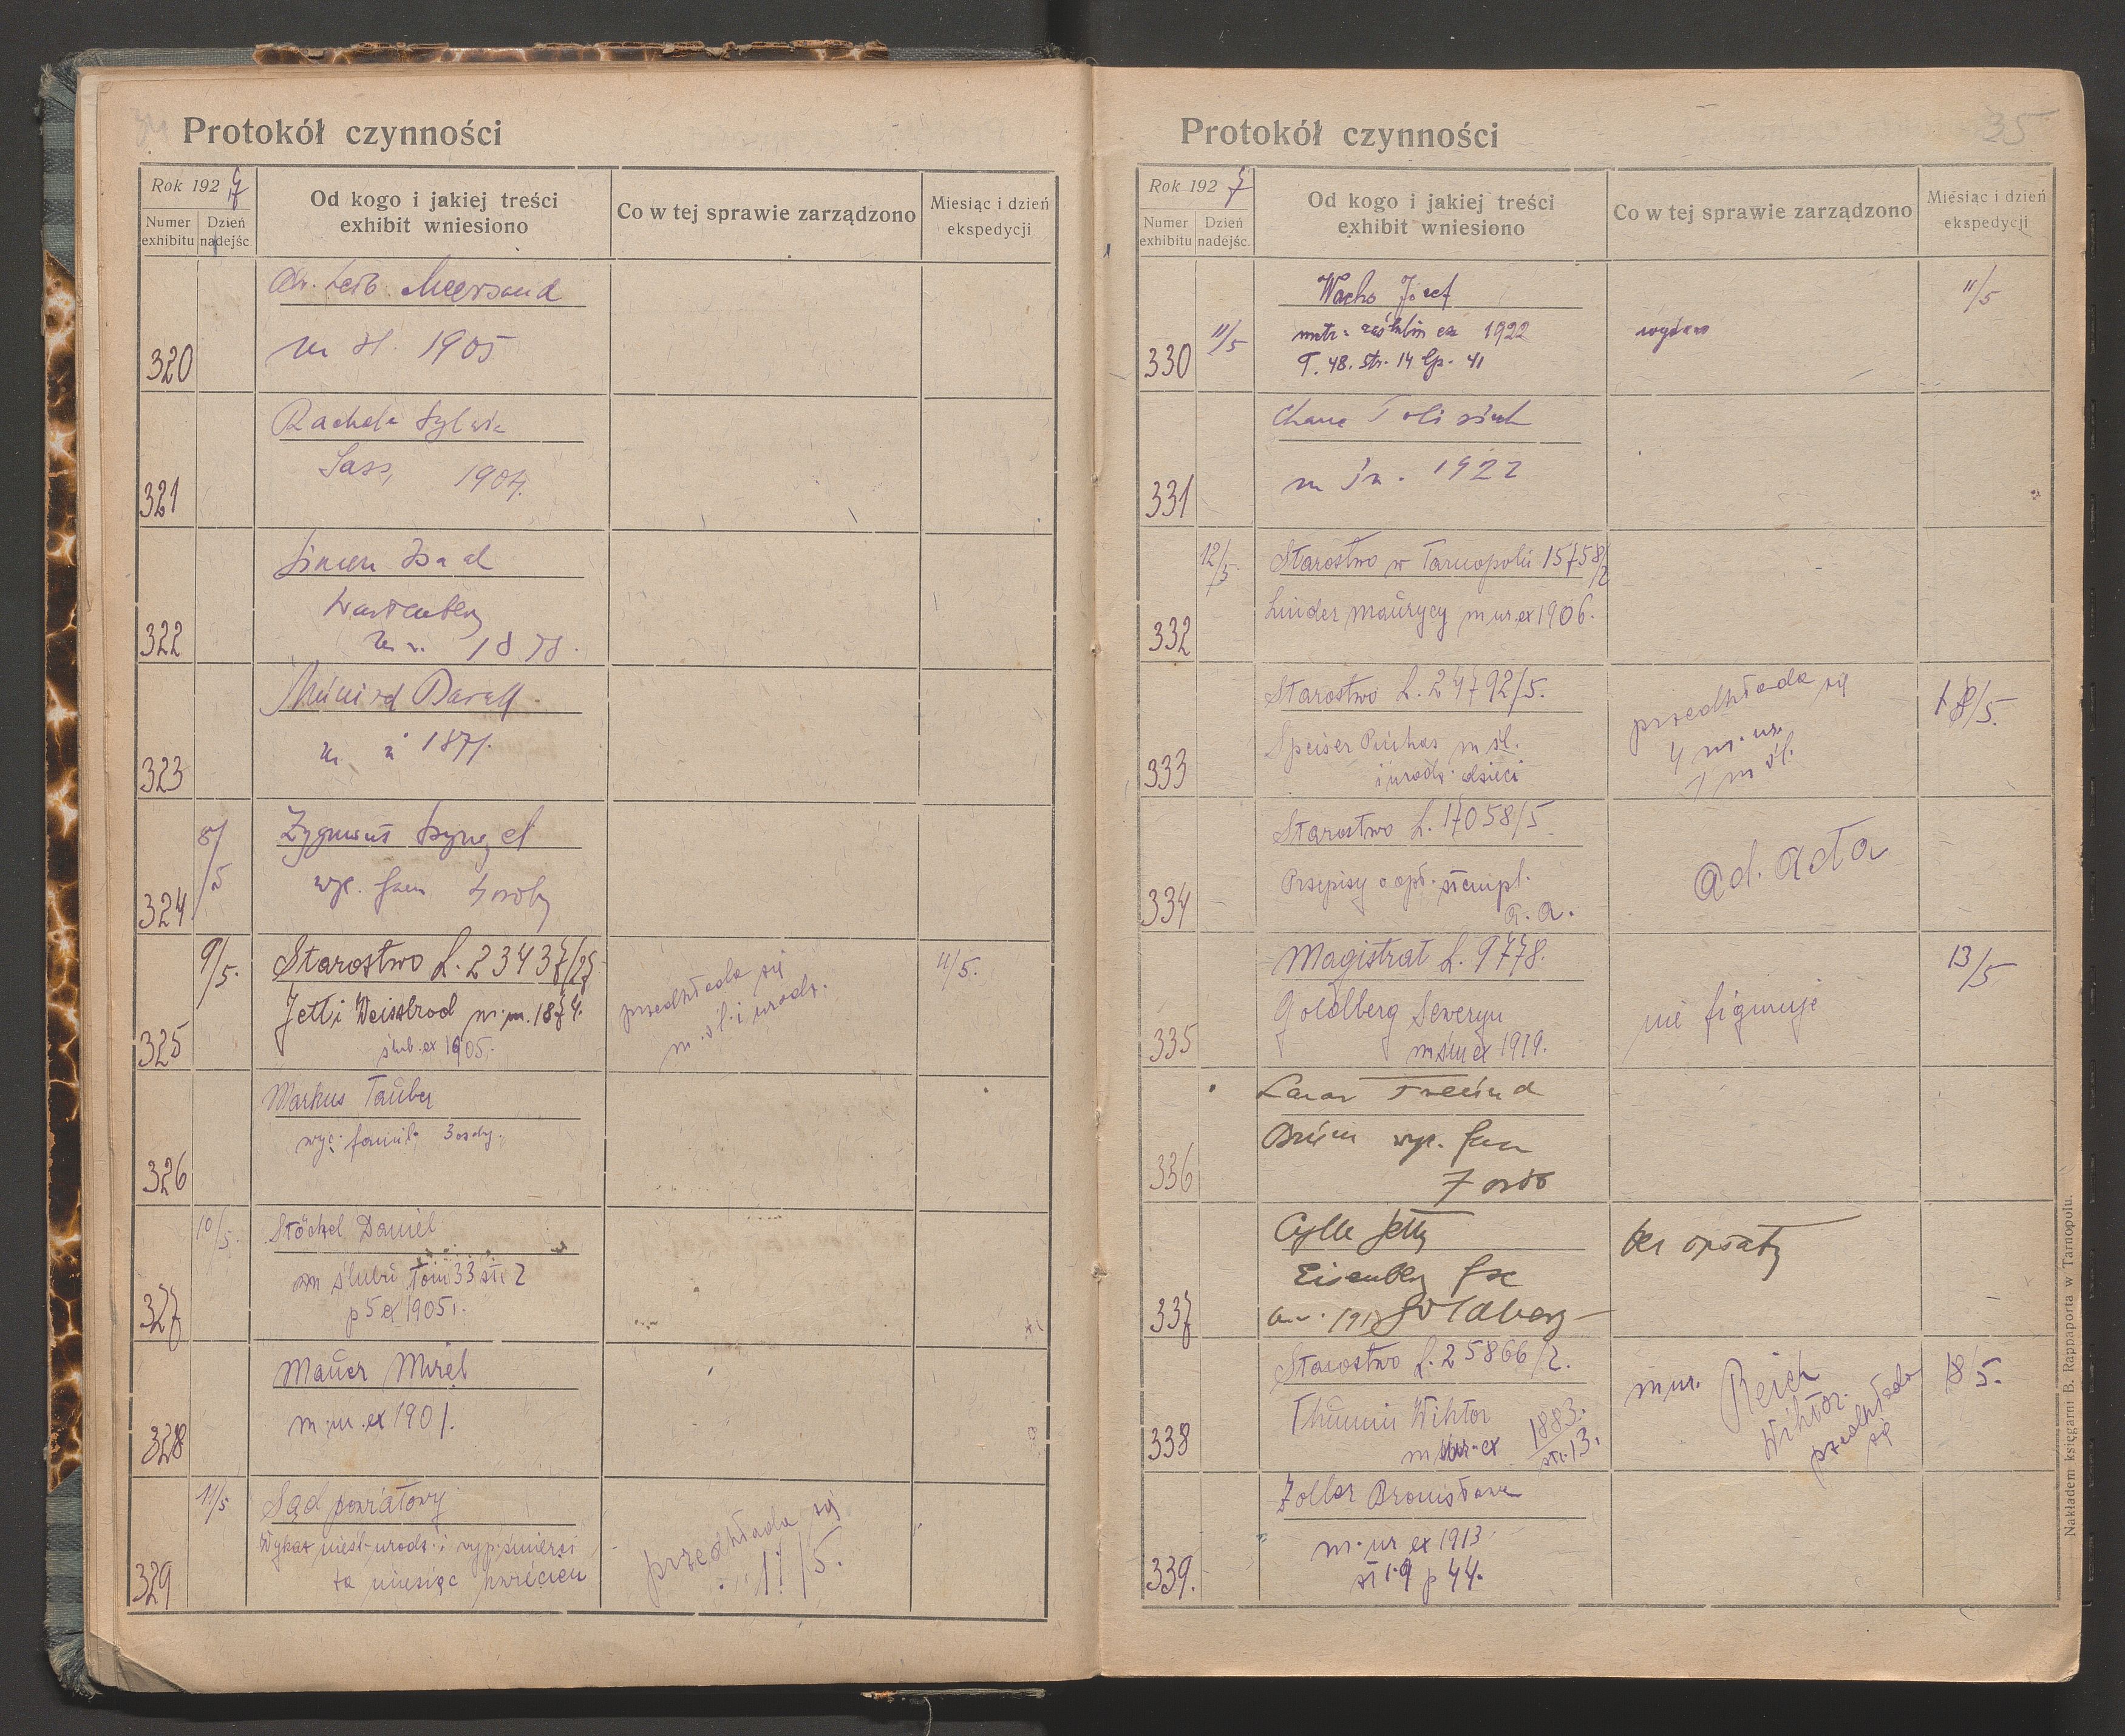 Protokół czynności
Rok 1927
Numer exhibitu
Dzień nadejśc.
Od kogo i jakiej treści
exhibit wniesiono
Co w tej sprawie zarządzono
Miesiąc i dzień
ekspedycji
320
Leib Meersand
m śl. 1905
321
Rachela Sylwia
Sass, 1904.
322
1878.
323
1871.
324
8/5
Zygmunt
wyc. fam 4 osoby
325
9/5.
Starostwo L. 23437/25
Jetti Weissbrod m. ur. 1874.
ślub. ex 1905.
przedkłada się
m. śl. i urodz.
11/5.
326
Markus Tauber
wyc. famil. 3 osoby.
327
10/5.
Stöckel Daniel
m ślubu Tom 33 str 2
p 5 ex 1905 r.
328
Mauer Mirel
m. ur. ex 1901.
329
11/5
Sąd powiatowy
Wykaz nieśl. urodz. i wyp. śmierci
za miesiąc kwiecień
przedkłada się
11/5.
Protokół czynności
35
Rok 1927
Numer exhibitu
Dzień nadejśc.
Od kogo i jakiej treści
exhibit wniesiono
Co w tej sprawie zarządzono
Miesiąc i dzień
ekspedycji
330
11/5
Józef
metr. zaślubin ex 1922
T. 48. str. 14 lp. 41
wydano
11/5
331
Chane
1922
332
12/5.
Starostwo w Tarnopolu 15758/2
Linder Maurycy m ur. ex 1906.
333
Starostwo L. 24792/5.
Speiser Pinkas m śl.
i urodz. dzieci
przedkłada się
4 m. ur.
1 m śl.
18/5.
334
Starostwo L. 17058/5
Przepisy o opł. stempl.
a. a.
ad. acta
335
Magistrat L. 9778.
Goldberg Seweryn
m śm ex 1919.
nie figuruje
13/5
336
Lazar
wyc. fam
7 osób
337
Cylle Jetty
Eisenberg
Goldberg
bez opłaty
338
Starostwo L. 25866/2.
Thumin Wiktor
m ur. ex 1883.
str. 13.
m ur. Reich
Wiktor.
przedkłada
się
18/5.
339.
Zoller Bronisława
m. ur ex 1913
str 9 p 44.
Nakładem księgarni B. Rappaporta w Tarnopolu.